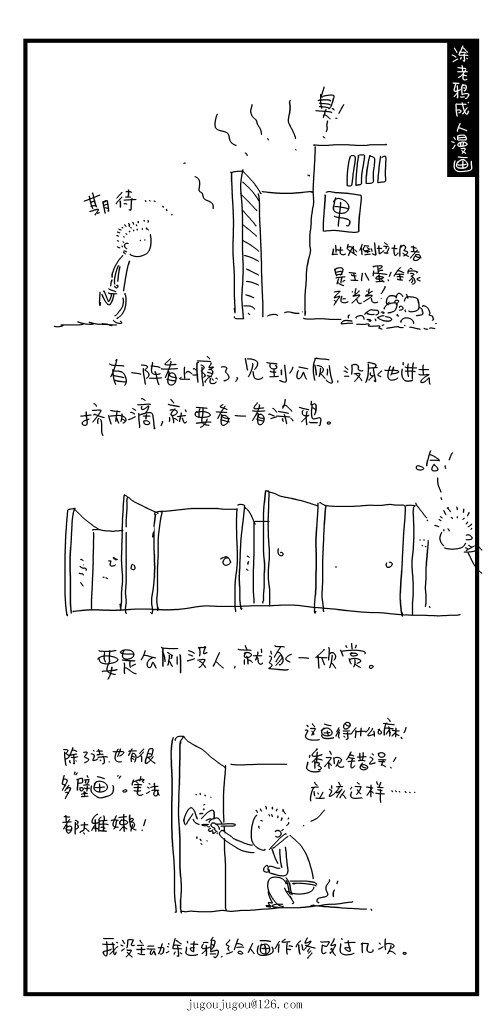 涂老鸦成人漫画
臭！
期待……
男
此处倒垃圾者
是王八蛋！全家
死光光！
有一阵看上瘾了，见到公厕，没尿也进去
挤两滴，就要看一看涂鸦。
哈！
要是公厕没人，就逐一欣赏。
除了诗，也有很
多“壁画”。笔法
都太稚嫩！
这画得什么嘛！
透视错误！
应该这样……
我没主动涂过鸦，给人画作修改过几次。
jugoujugou@126.com